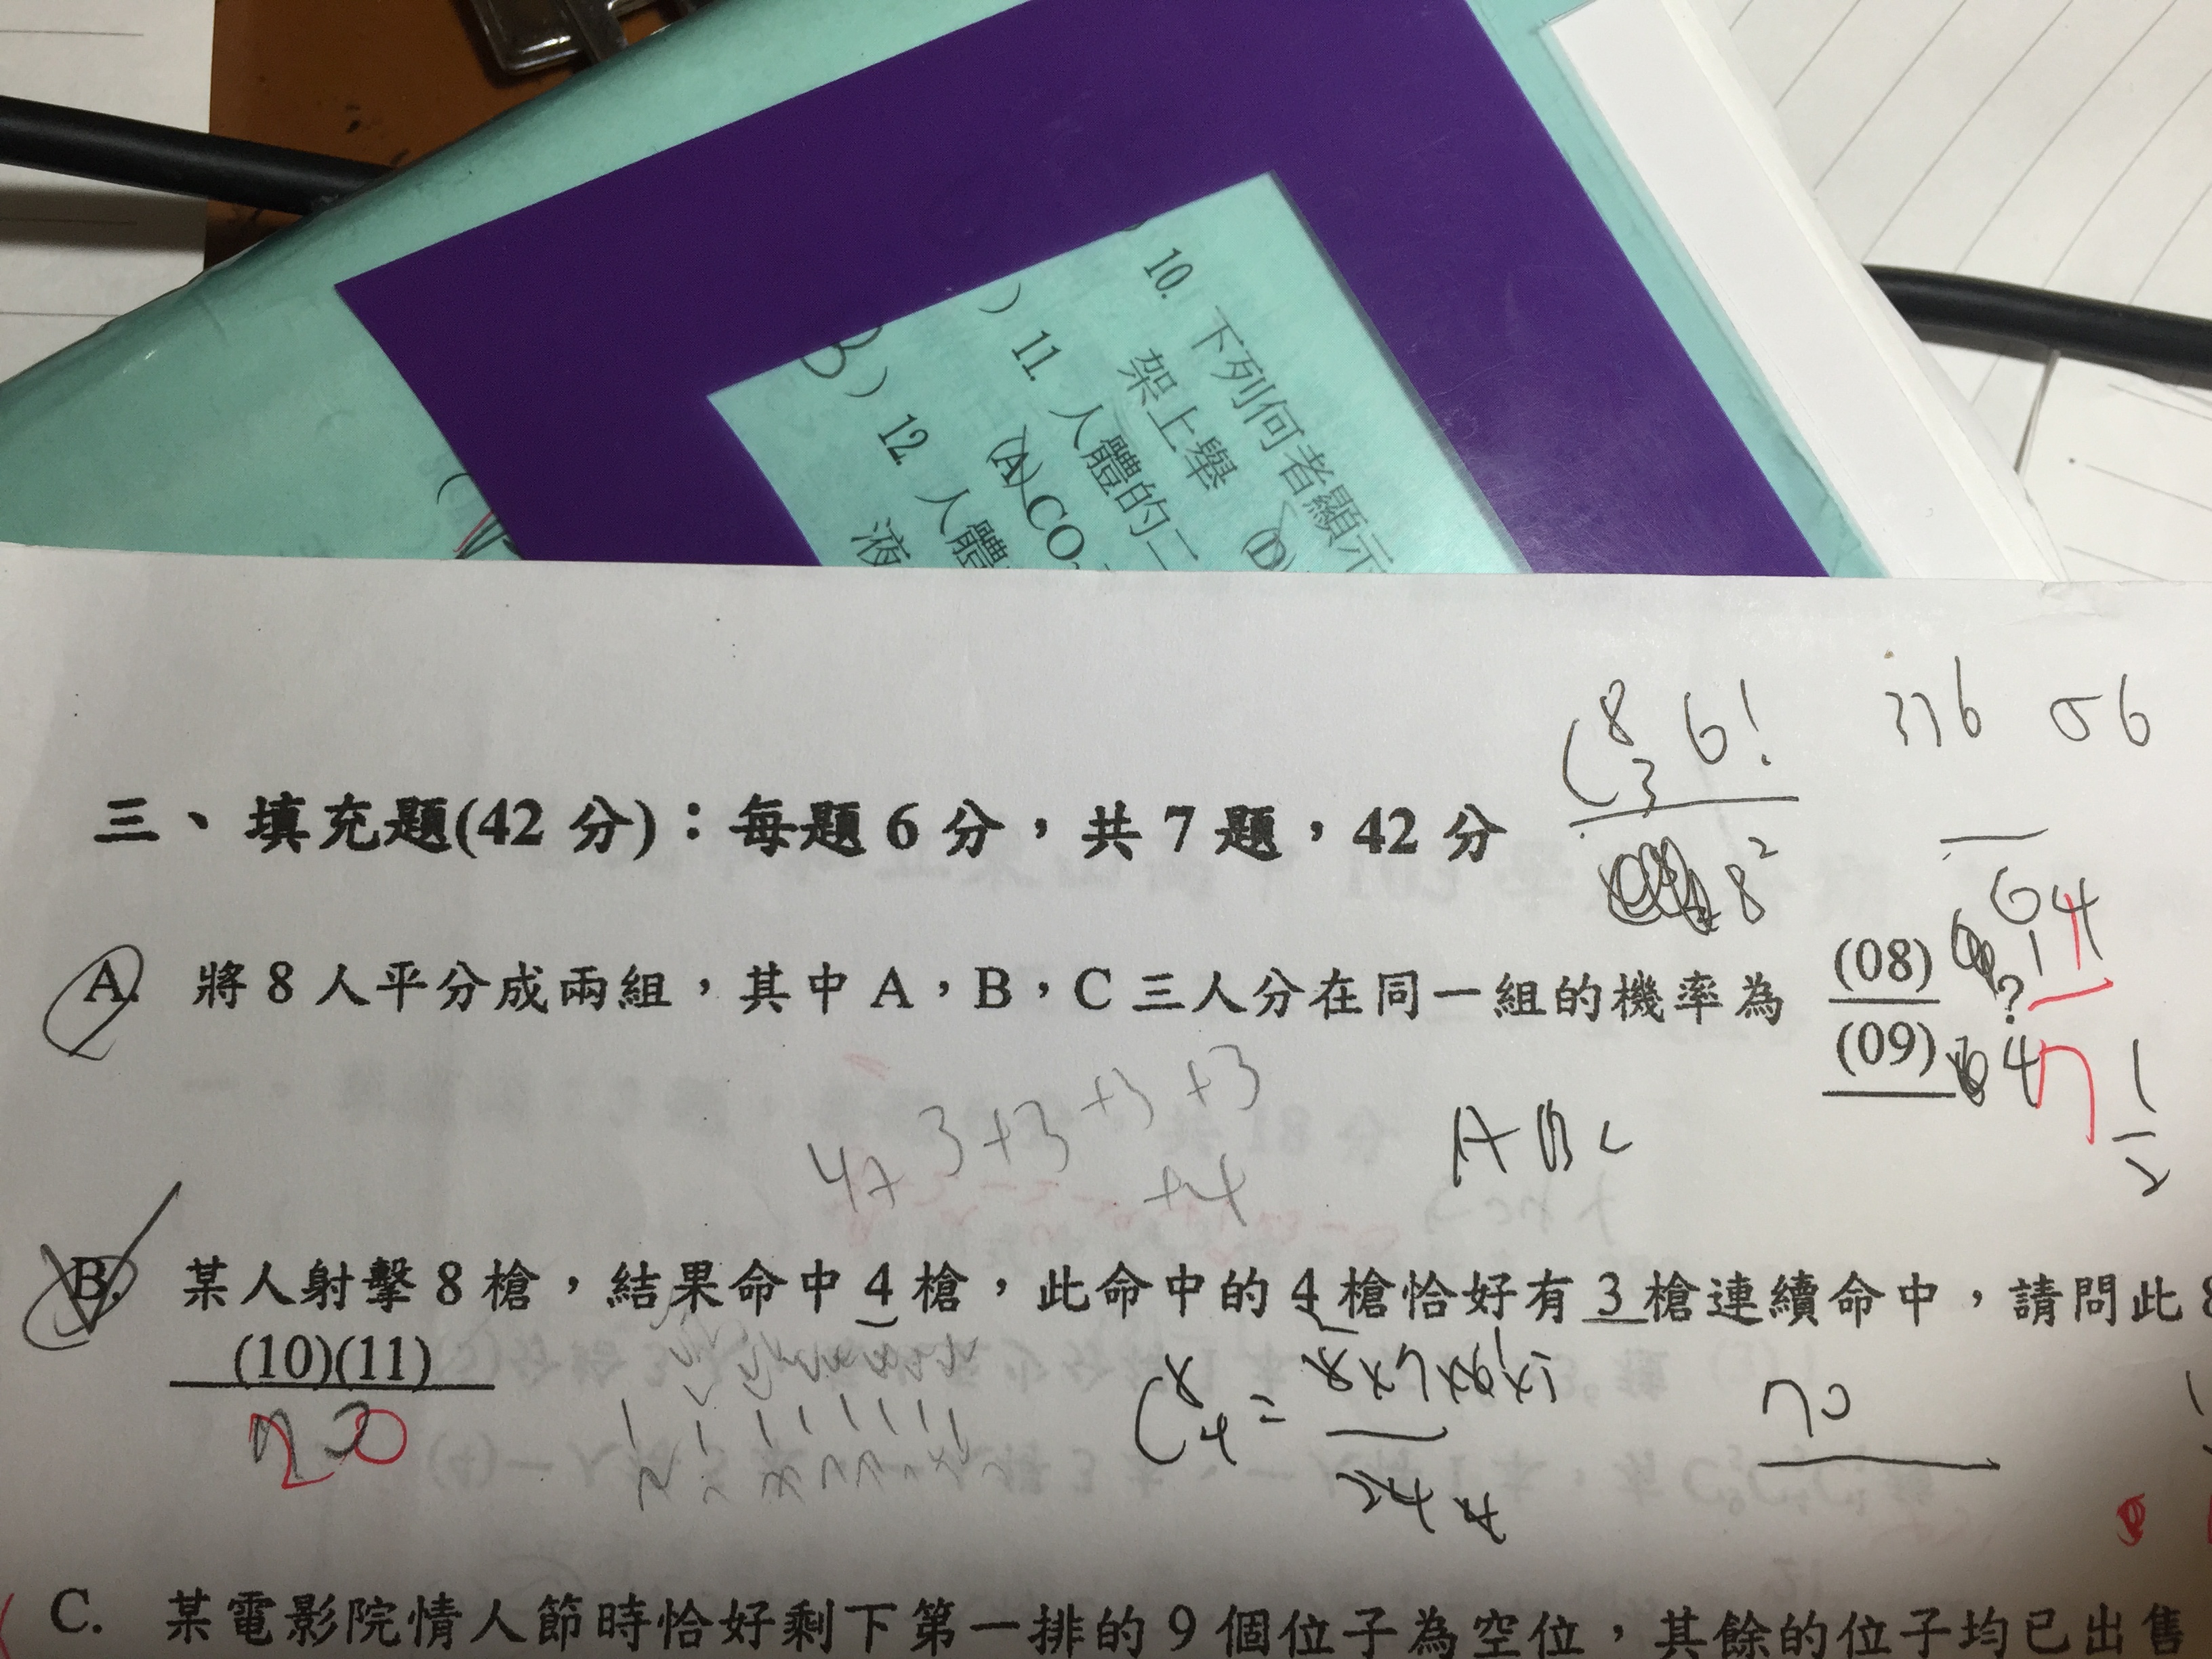 10. 下列何者顯示
架上舉 (D)
) 11. 人體的二
(A) CO
B ) 12. 人體
液
C 8 3 6! 376 56
8² 64
三、填充題(42 分)：每題 6 分，共 7 題，42 分
A. 將 8 人平分成兩組，其中 A，B，C 三人分在同一組的機率為 (08) 1
(09) ?
4 7 1
2
3+3+3+3
+4
A B C
B. 某人射擊 8 槍，結果命中 4 槍，此命中的 4 槍恰好有 3 槍連續命中，請問此 8
(10)(11)
20
C 8 4 = 8×7×6×5
24
70
C. 某電影院情人節時恰好剩下第一排的 9 個位子為空位，其餘的位子均已出售